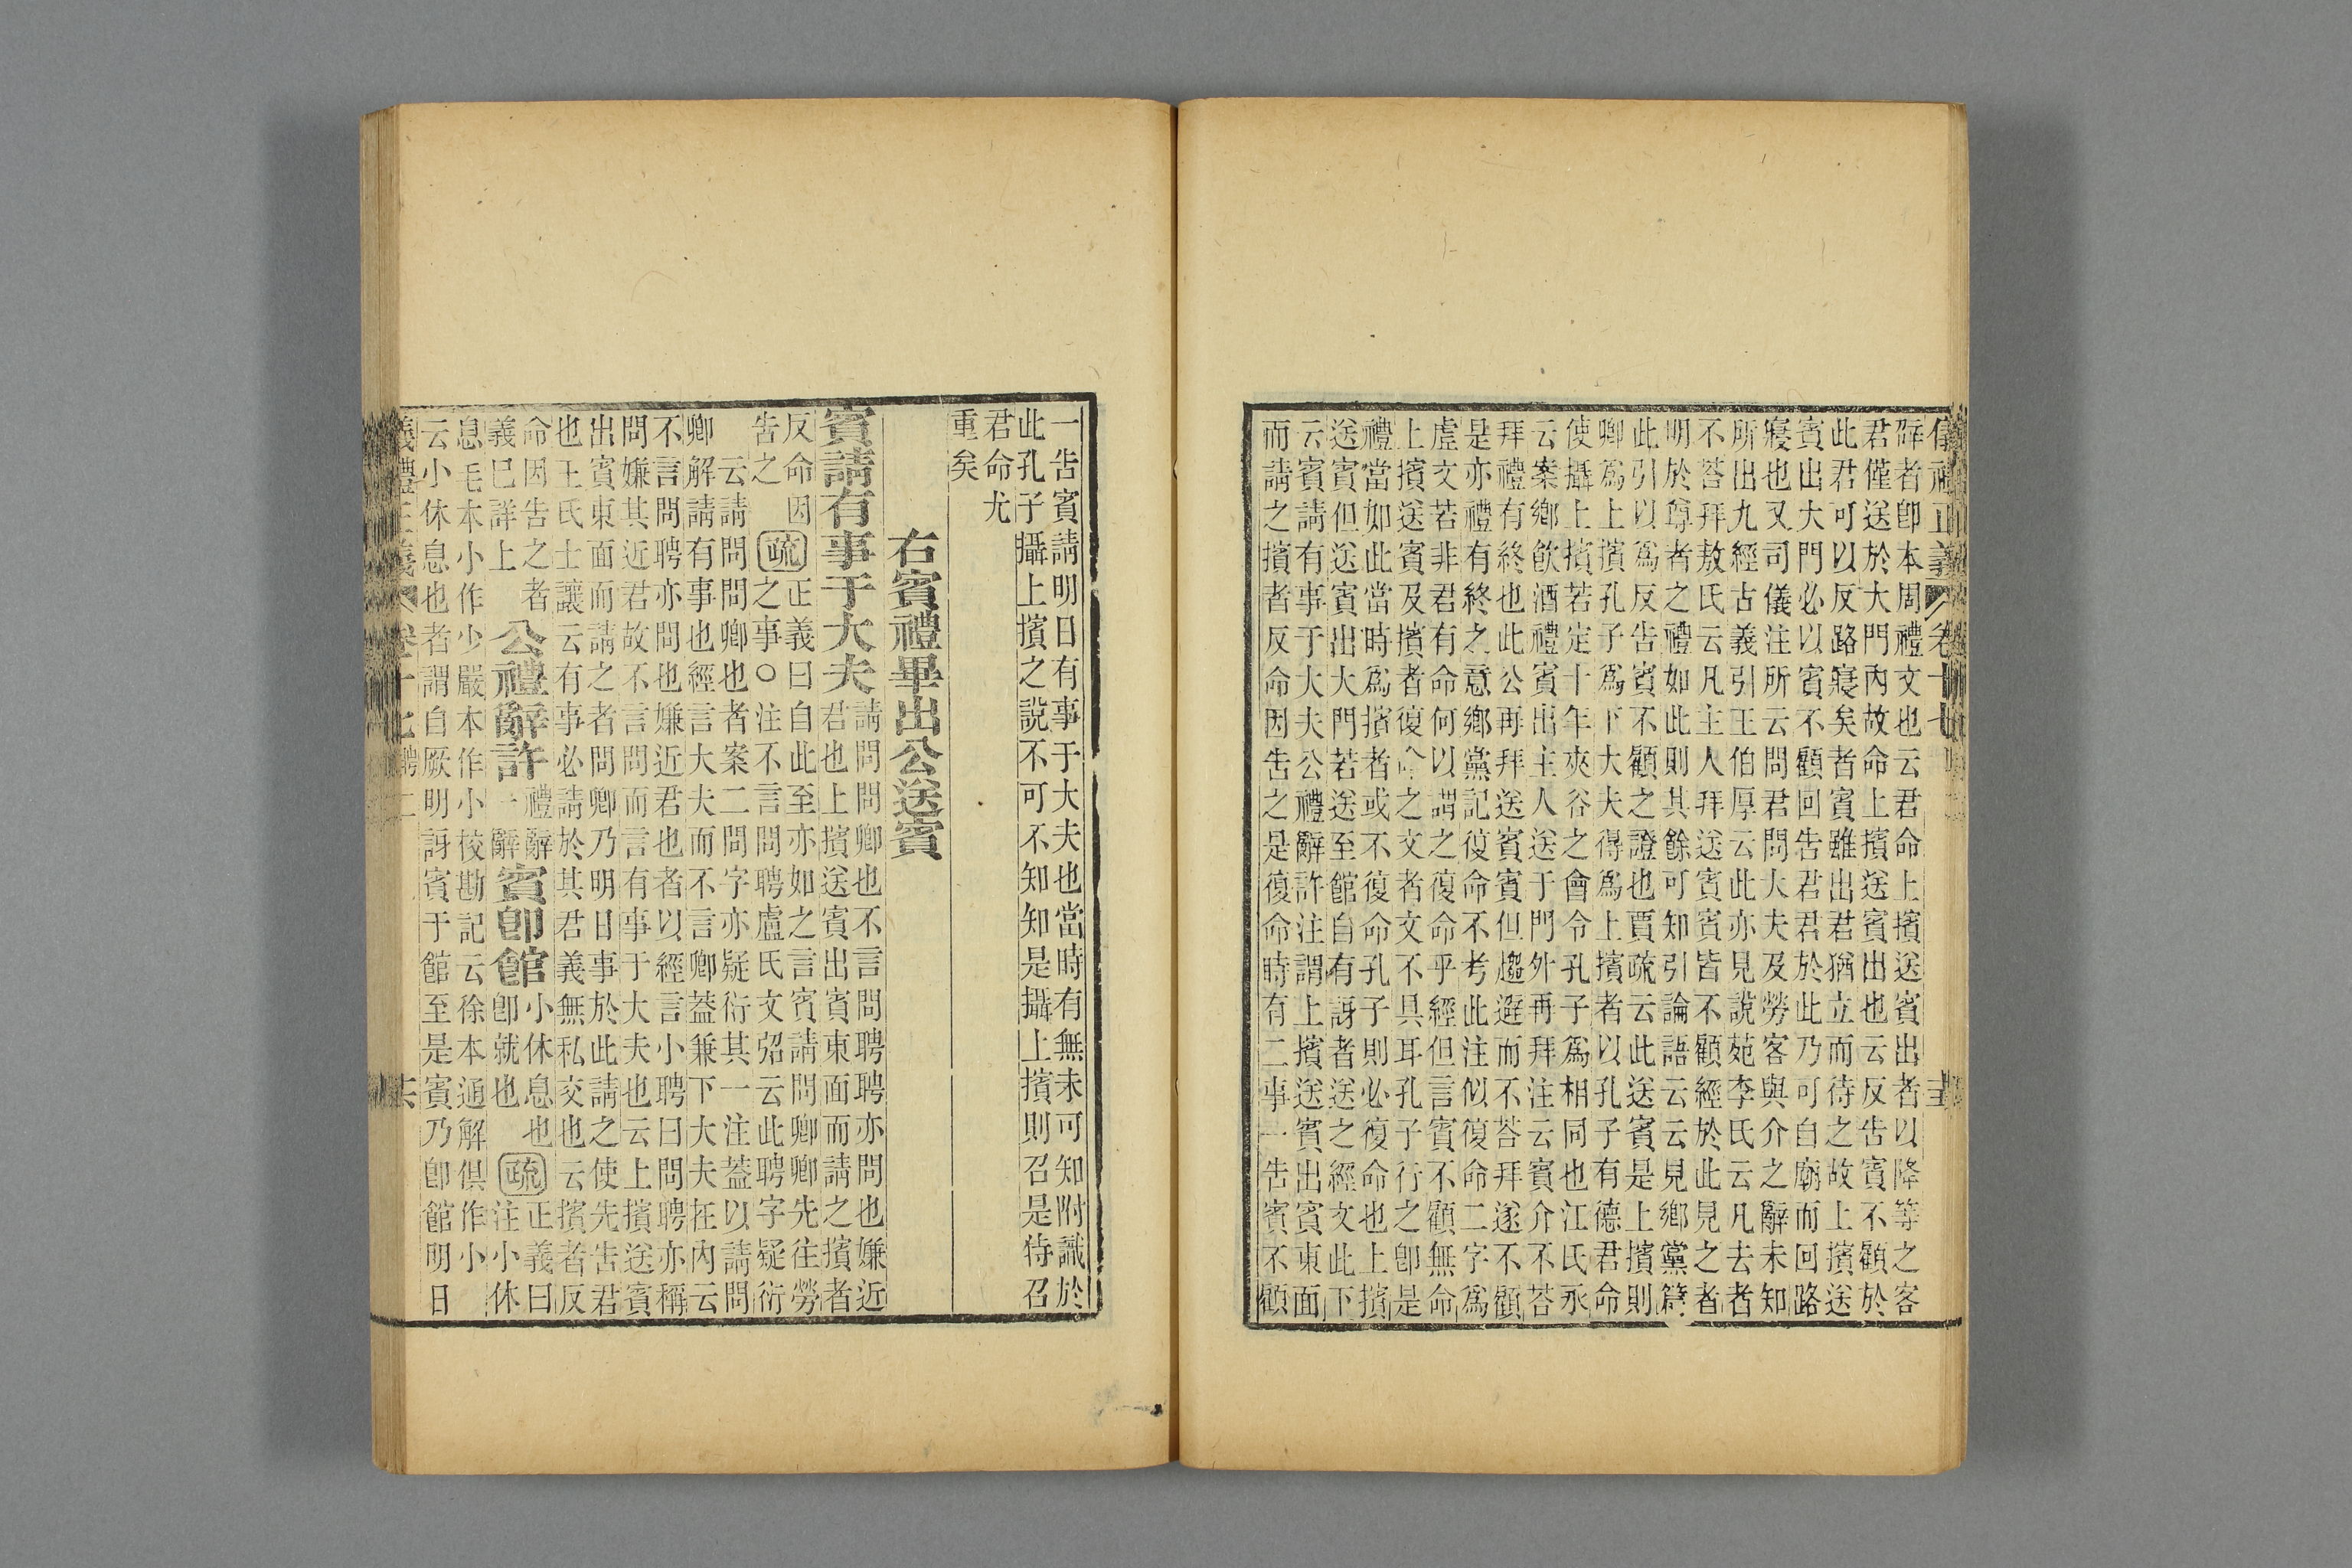 儀禮正義 卷十七 聘二 十五
辭者卽本周禮文也云君命上擯送賓出者以降等之客
君僅送於大門內故命上擯送賓出也云反告賓不顧於
此君可以反路寢矣者賓雖出君猶立而待之故上擯送
賓出大門必以賓不顧回告君君於此乃可自廟而回路
寢也又司儀注所云問君問大夫及勞客與介之辭未知
所出九經古義引王伯厚云此亦見說苑李氏云凡去者
不荅拜敖氏云凡主人拜送賓賓皆不顧經於此見之者
明於尊者之禮如此則其餘可知引論語云云見鄉黨篇
此引以爲反告賓不顧之證也賈疏云此送賓是上擯則
卿爲上擯孔子爲下大夫得爲上擯者以孔子有德君命
使攝上擯若定十年夾谷之會令孔子爲相同也江氏永
云案鄉飲酒禮賓出主人送于門外再拜注云賓介不荅
拜禮有終也此公再拜送賓賓但趨避而不荅拜遂不顧
是亦禮有終之意鄉黨記復命不考此注似復命二字爲
虛文若非君有命何以謂之復命乎經但言賓不顧無命
上擯送賓及擯者復命之文者文不具耳孔子行之卽是
禮當如此當時爲擯者或不復命孔子則必復命也上擯
送賓但送賓出大門若送至館自有訝者送之經文此下
云賓請有事于大夫公禮辭許注謂上擯送賓出賓東面
而請之擯者反命因告之是復命時有二事一告賓不顧
一告賓請明日有事于大夫也當時有無未可知附識於
此孔子攝上擯之說不可不知知是攝上擯則召是特召
君命尤
重矣
右賓禮畢出公送賓
賓請有事于大夫請問問卿也不言問聘聘亦問也嫌近
君也上擯送賓出賓東面而請之擯者
反命因
告之疏正義曰自此至亦如之言賓請問卿卿先往勞
之事○注不言問聘盧氏文弨云此聘字疑衍
云請問問卿也者案二問字亦疑衍其一注蓋以請問
卿解請有事也經言大夫而不言卿蓋兼下大夫在內云
不言問聘亦問也嫌近君也者以經言小聘曰問聘亦稱
問嫌其近君故不言問而言有事于大夫也云上擯送賓
出賓東面而請之者問卿乃明日事於此請之使先告君
也王氏士讓云有事必請於其君義無私交也云擯者反
命因告之者
義已詳上公禮辭許禮辭
一辭賓卽館小休息也
卽就也疏正義曰
注小休
息毛本小作少嚴本作小校勘記云徐本通解俱作小
云小休息也者謂自厥明訝賓于館至是賓乃卽館明日
義禮正義 卷十七 聘二 十六